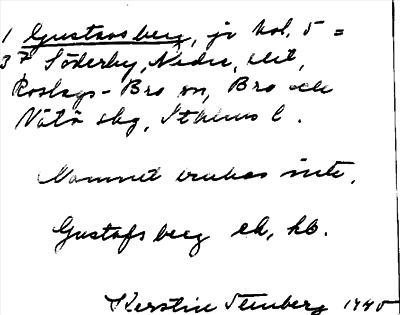 1 Gustavsberg, jr kol. 5 =
3⁷ Söderby, Nedre, utt,
Roslags-Bro sn, Bro och
Vätö skg, Sthlms l.
Namnet brukas inte.
Gustafsberg ek, hb.
Kerstin Tenberg 1940